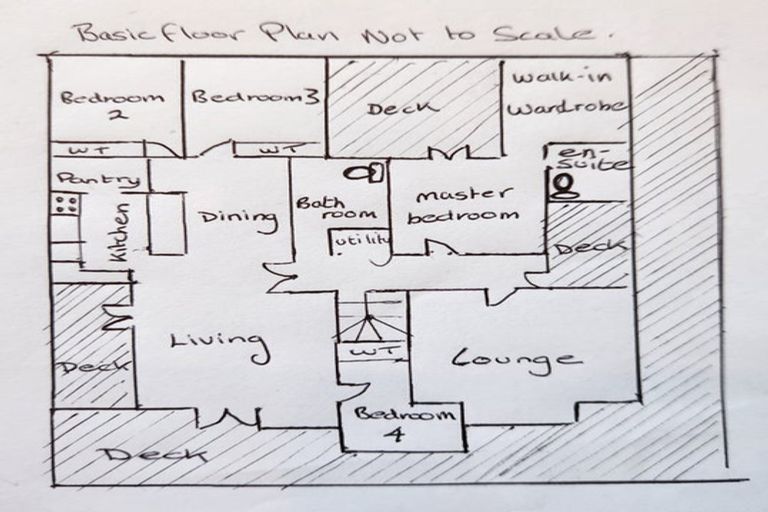 Basic Floor Plan Not to Scale.
Bedroom
2
Bedroom 3
Deck
Walk-in
Wardrobe
WT
WT
en-
suite
Pantry
Kitchen
Dining
Bath
room
utility
master
bedroom
Deck
Living
WT
Lounge
Deck
Bedroom
4
Deck